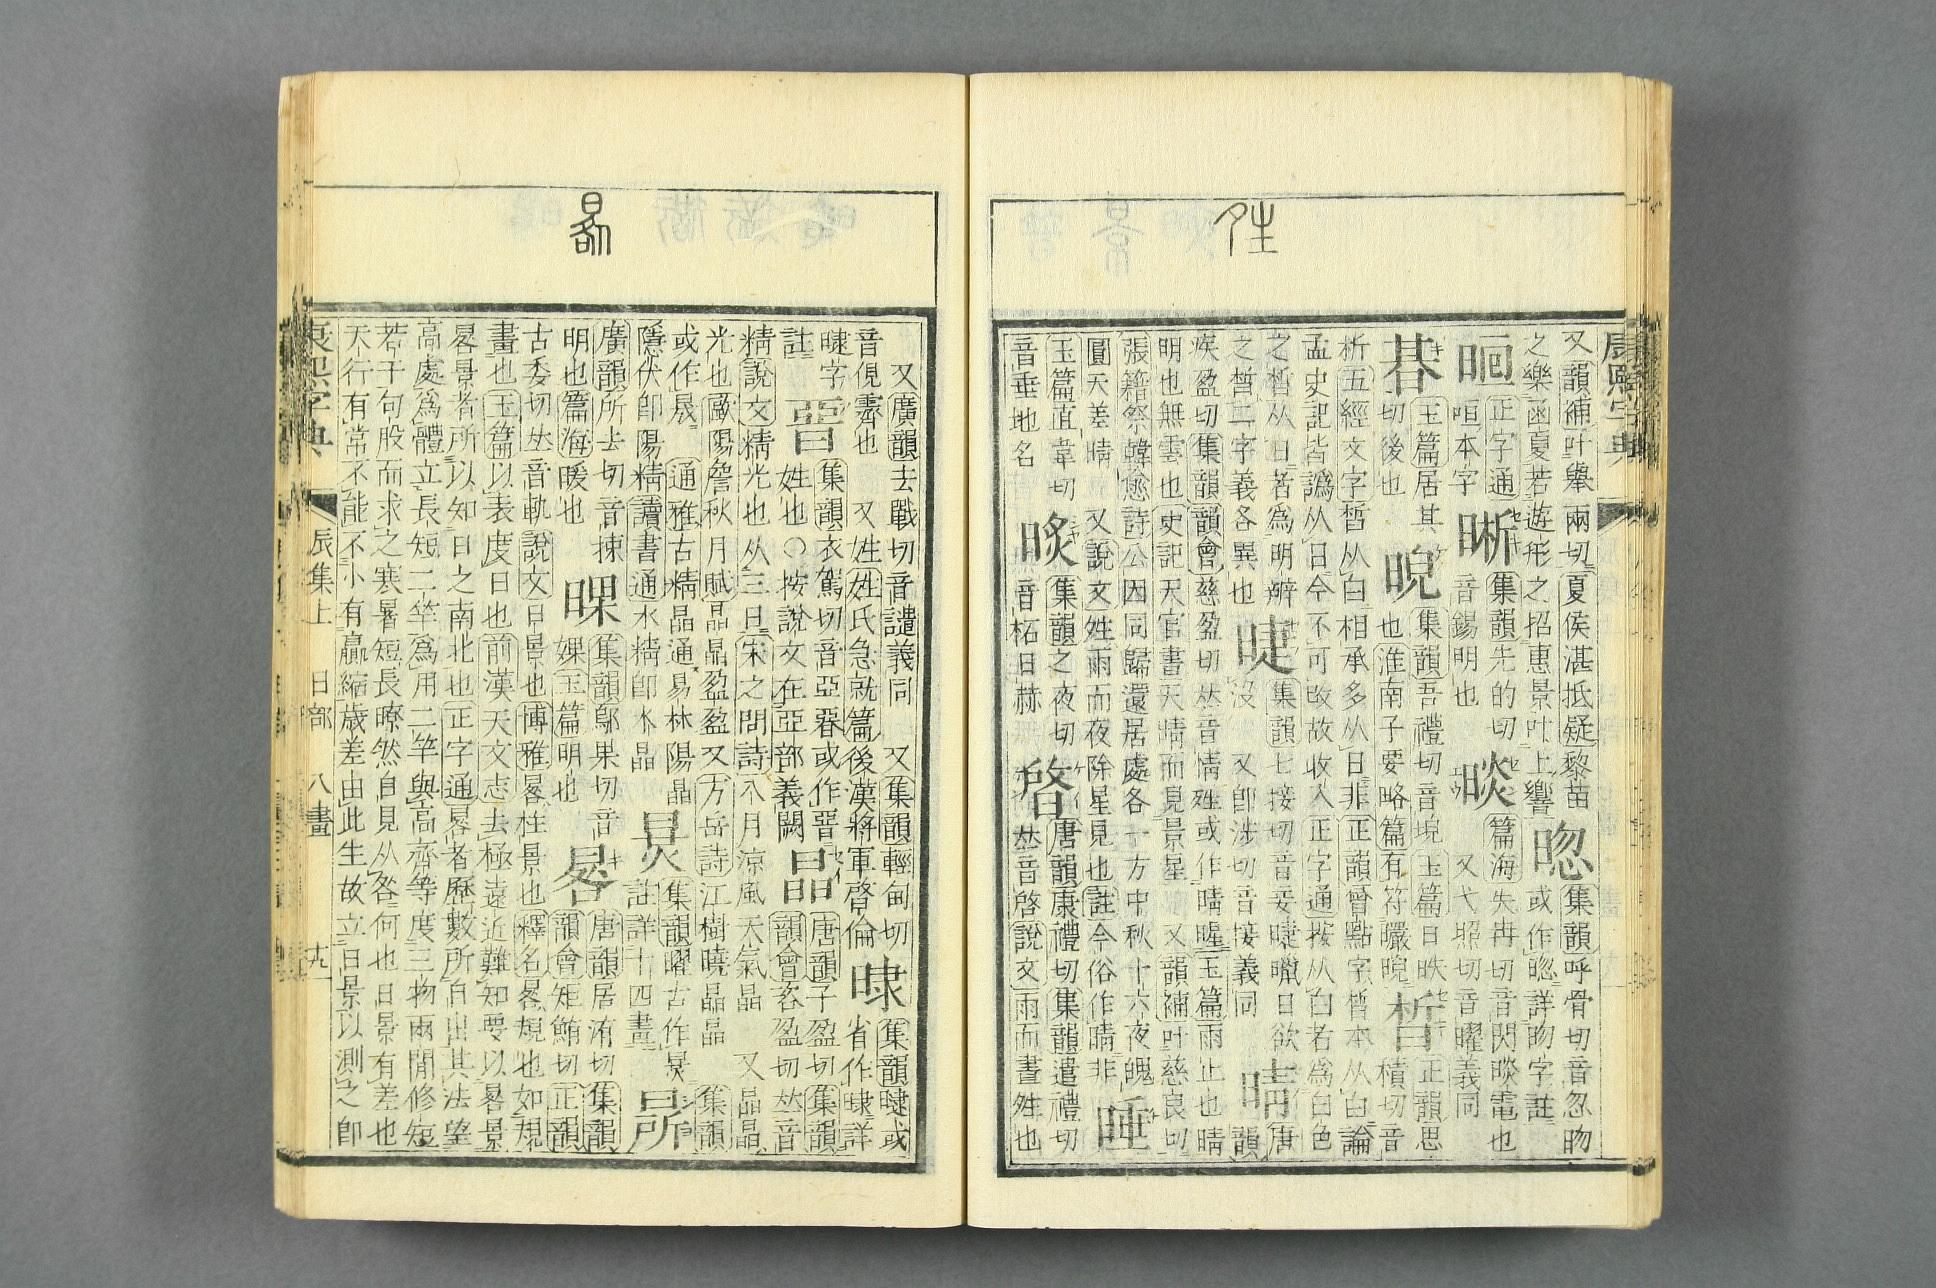 夝
又韻補叶舉兩切夏侯湛抵疑黎苗集韻呼骨切音忽昒
之樂函夏若遊形之招惠景叶上響或作詳昒字註
正字通晰集韻先的切晱篇海失冉切音閃晱電也
晅本字音錫明也又弋照切音曜義同
朞玉篇居其晲集韻吾禮切音堄玉篇日昳晳正韻思
切後也也淮南子要略篇有符曮晲積切音
析五經文字皙从白相承多从日非正韻會點字皙本从白論
孟史記皆譌从日今不可改故收入正字通按从白者爲白色
之皙从日者爲明辨集韻七接切音妾日欲晴唐
之晳二字義各異也沒又卽涉切音接義同韻
疾盈切集韻韻會慈盈切𠀤音情夝或作晴暒玉篇雨止也晴
明也無雲也史記天官書天晴而見景星又韻補叶慈良切
張籍祭韓愈詩公因同歸還居處各一方中秋十六夜魄
圓天差晴又說文夝雨而夜除星見也註今俗作晴非
玉篇直韋切集韻之夜切晵唐韻康禮切集韻遣禮切
音垂地名音柘日赫𠀤音啓說文雨而晝夝也
康熙字典
晷
又廣韻去戰切音譴義同又集韻輕甸切集韻曃或
音俔霽也又姓姓氏急就篇後漢將軍晵倫省作詳
曃字集韻衣駕切音亞㫺或作晉晶唐韻子盈切集韻
註姓也○按說文在亞部義闕韻會咨盈切𠀤音
精說文精光也从三日宋之問詩八月涼風天氣晶又晶晶
光也歐陽詹秋月賦晶晶盈盈又方岳詩江樹曉晶晶集韻
或作晟通雅古精晶通易林陽晶集韻曜古作炅
隱伏卽陽精讀書通水精卽水晶註詳十四畫
廣韻所去切音揀集韻鄔果切音唐韻居洧切集韻
明也篇海暖也婐玉篇明也晷韻會矩鮪切正韻
古委切𠀤音軌說文日景也博雅晷柱景也釋名晷規也如規
畫也玉篇以表度日也前漢天文志去極遠近難知要以晷景
晷景者所以知日之南北也正字通晷者歷數所自出其法望
高處爲體立長短二竿爲用二竿與高齊等度三物兩閒修短
若干句股而求之寒暑短長瞭然自見从咎何也日景有差也
天行有常不能不小有贏縮歲差由此生故立日景以測之卽
康熙字典 辰集上 日部 八畫 十九